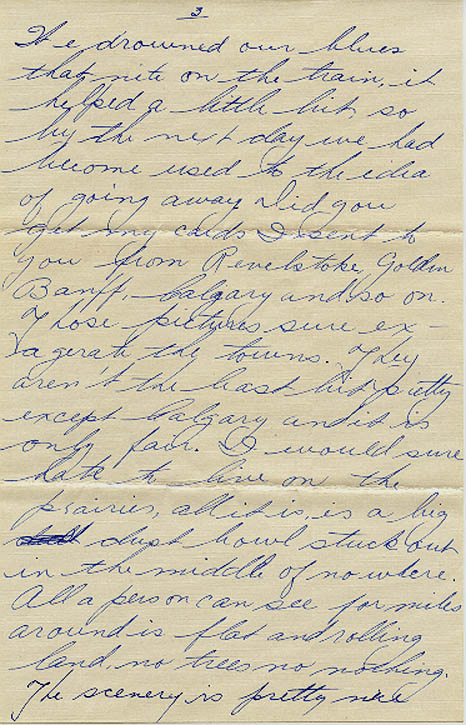 3
We drowned our blues
that nite on the train, it
helped a little bit, so
by the next day we had
become used to the idea
of going away. Did you
get my cards I sent to
you from Revelstoke, Golden
Banff, Calgary and so on.
Those pictures sure ex-
agerate the towns. They
aren't the least bit pretty
except Calgary and it is
only fair. I would sure
hate to live on the
prairies, all it is, is a big
dust bowl stuck out
in the middle of nowhere.
All a person can see for miles
around is flat and rolling
land, no trees no nothing.
The scenery is pretty nice